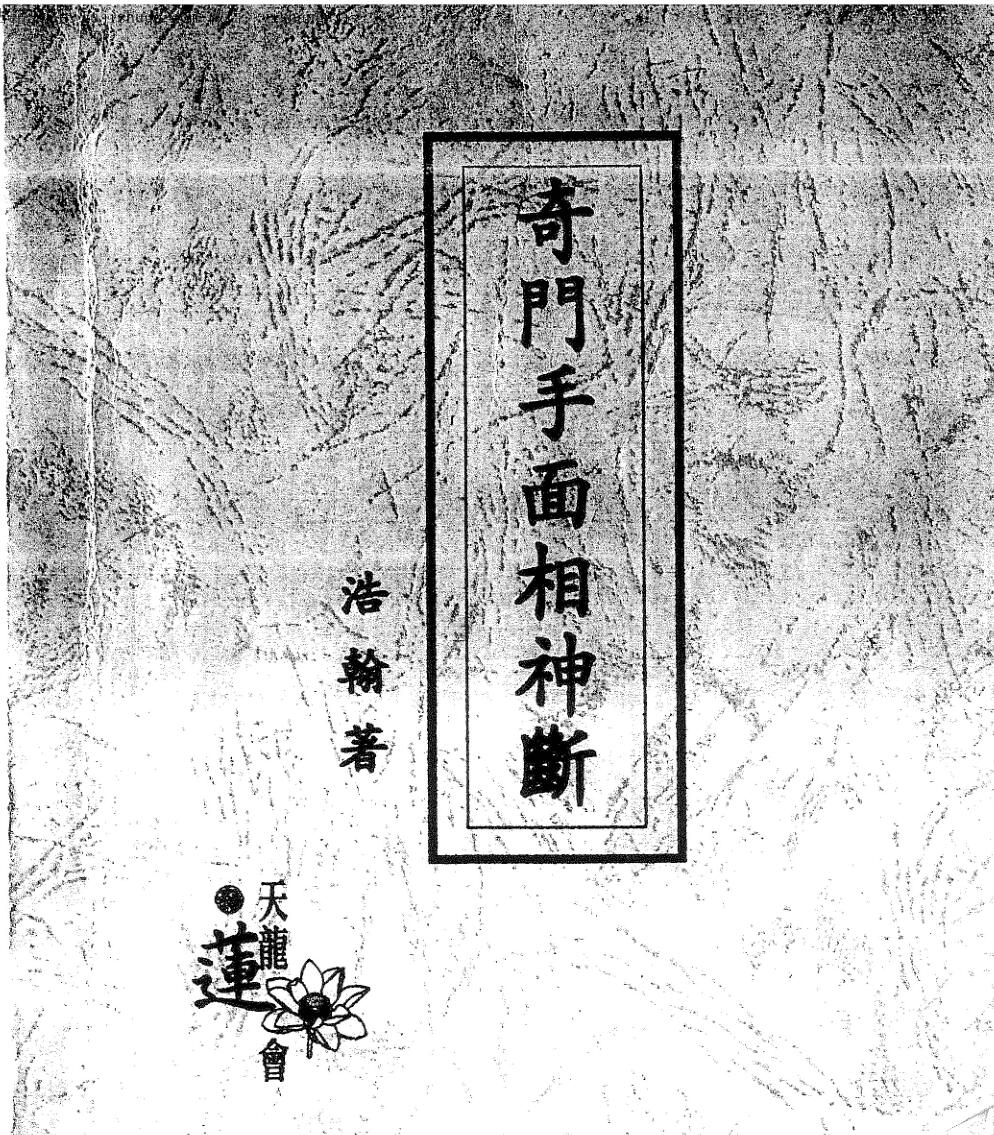 奇門手面相神斷
浩翰著
天龍
蓮
會